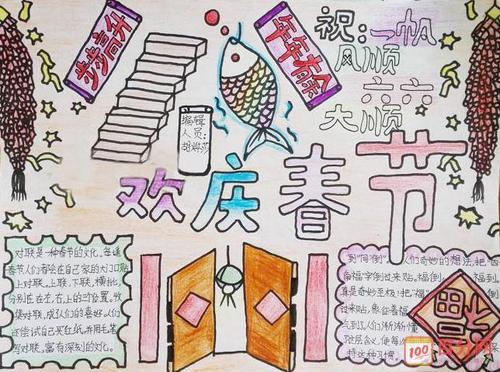 步步高升
年年有余
祝:一帆
风顺
六六
大顺
编辑
人员:
欢庆春节
对联是一种春节的文化。每逢
春节人们都会在自家的大门口贴
上对联。上联,下联,横批,
分别在左,右,上的三个位置。收
集对联,成了人们的喜好。人们
还尝试自己买红纸,并用毛笔
写对联,富有深刻的文化。
到"同"倒"。人们奇妙的想法,把
福字倒过来贴。福倒,福到,
真是奇妙至极!把"福
过来贴,象征着福
气到。人们渐渐懂
此层含义,使每
持这种习惯。
福
100